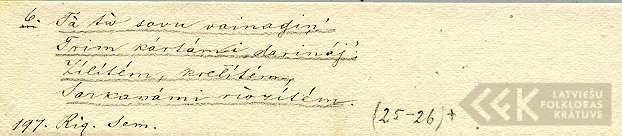 6. Tà tù sovu vainagiņ'
Trim kártámi darináj'
Zílítém, krelítém,
Sarkanámi rùozítém.
197. Rig. Sem. (25-26)+
LATVIEŠU
FOLKLORAS
KRĀTUVE